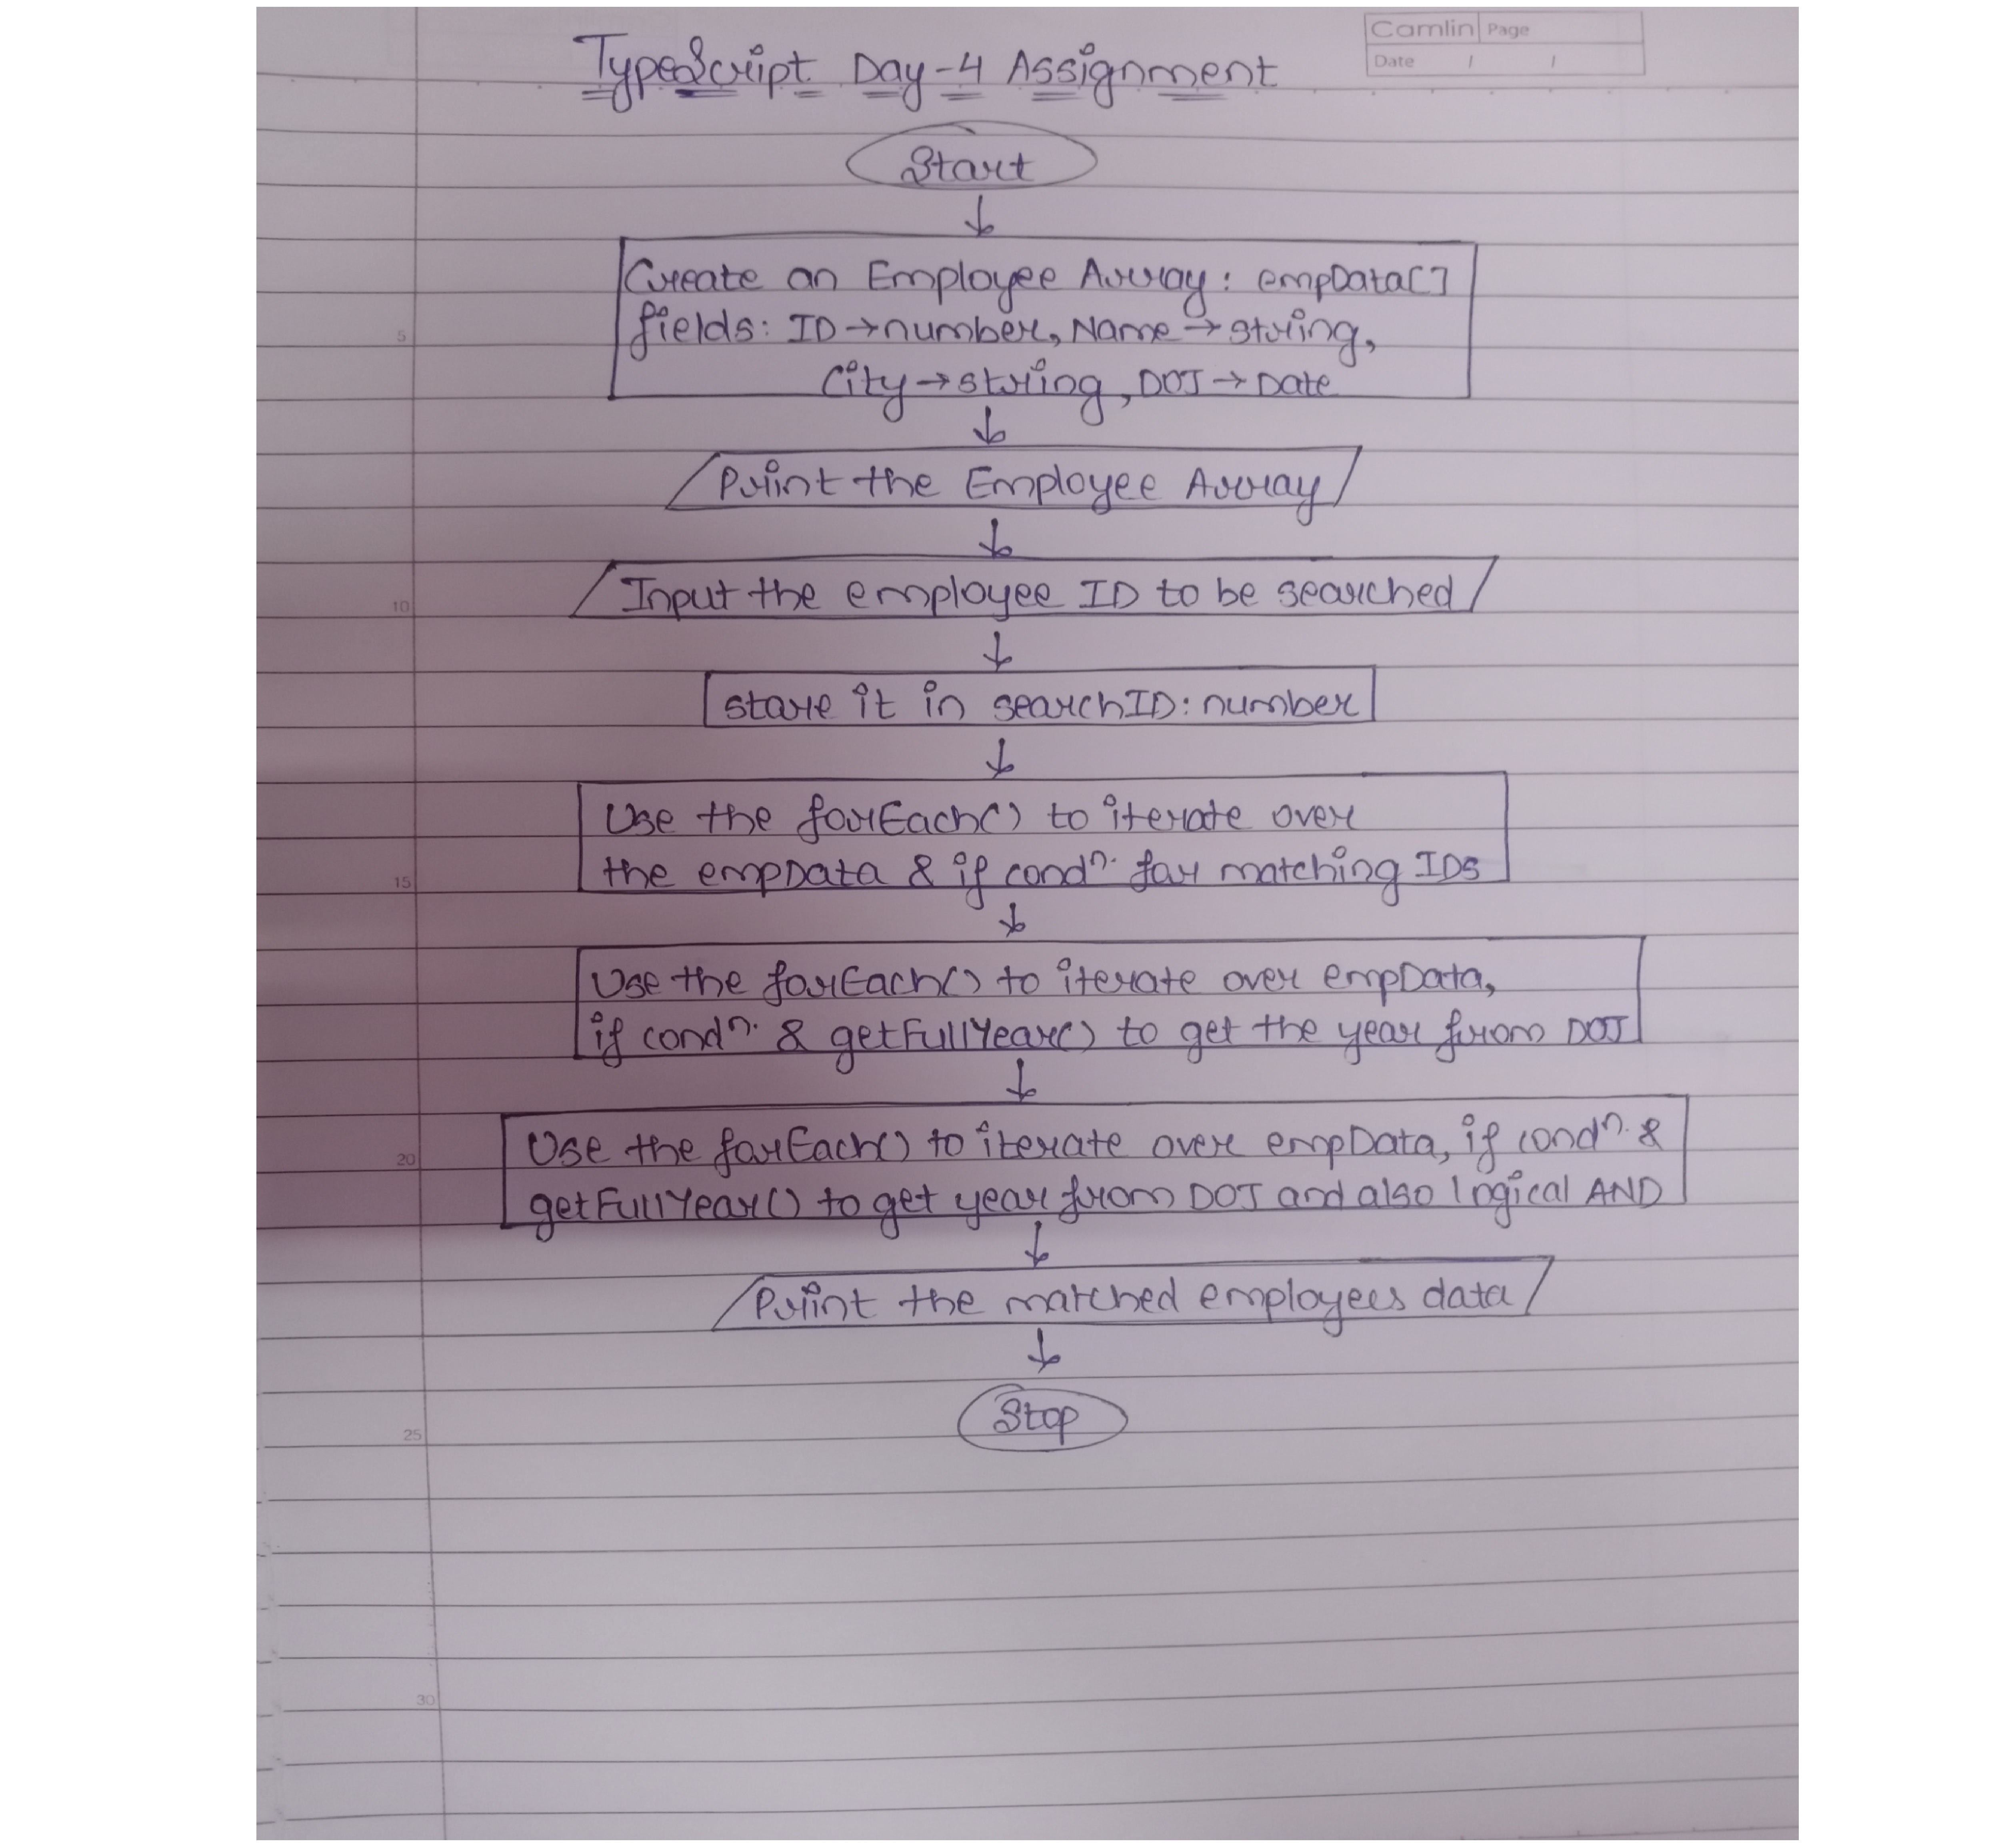 Camlin Page
Date / /
TypeScript Day-4 Assignment
Start
Create an Employee Array: empData[]
fields: ID→number, Name→string,
City→string, DOJ→Date
5
Print the Employee Array
Input the employee ID to be searched
10
store it in searchID: number
Use the forEach() to iterate over
the empData & if condn. for matching IDs
15
Use the forEach() to iterate over empData,
if condn. & getFullYear() to get the year from DOJ
Use the forEach() to iterate over empData, if condn. &
20
getFullYear() to get year from DOJ and also logical AND
Print the matched employees data
Stop
25
30